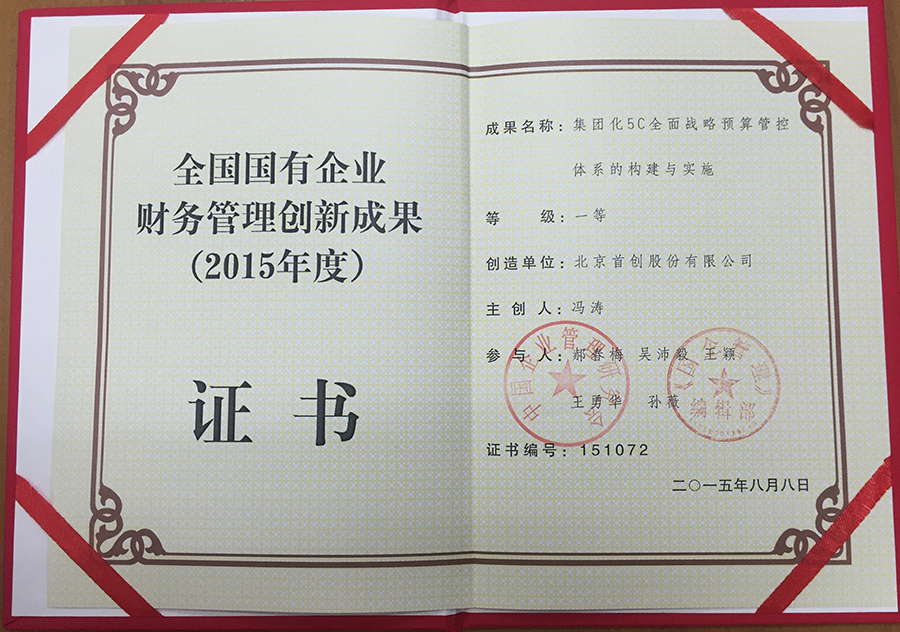 全国国有企业
财务管理创新成果
（2015年度）
证书
成果名称：集团化5C全面战略预算管控
体系的构建与实施
等 级：一等
创造单位：北京首创股份有限公司
主 创 人：冯涛
参 与 人：郝春梅 吴沛毅 王颖
王勇华 孙薇
证书编号：151072
二〇一五年八月八日
中国企业管理研究会
《国企管理》
编辑部